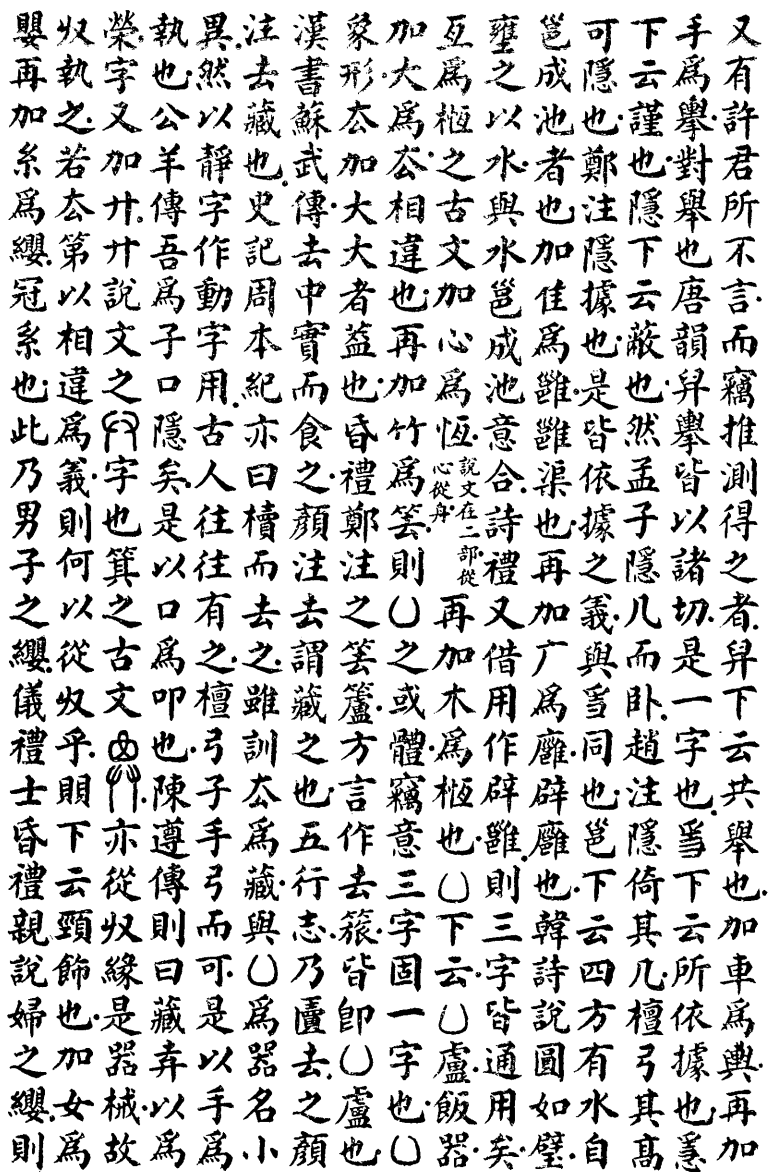 又有許君所不言而竊推測得之者舁下云共舉也加車為輿再加
手為擧對舉也唐韻舁擧皆以諸切是一字也㥯下云所依據也㥯
下云謹也隱下云蔽也然孟子隱几而卧趙注隱倚其几檀弓其高
可隱也鄭注隱據也是皆依據之義與㥯同也邕下云四方有水自
邕成池者也加隹為雝雝渠也再加广為廱辟廱也韓詩說圓如璧
壅之以水與水邕成池意合詩禮又借用作辟雝則三字皆通用矣
亙為柂之古文加心為恆說文在二部從心從舟再加木為柂也凵下云凵盧飯器
加大為厺相違也再加竹為筶則凵之或體竊意三字固一字也凵
象形厺加大大者蓋也昏禮鄭注之筶簋方言作去簇皆卽凵盧也
漢書蘇武傳去中實而食之顏注去謂藏之也五行志乃匵去之顏
注去藏也史記周本紀亦曰櫝而去之雖訓厺為藏與凵為器名小
異然以靜字作動字用古人往往有之檀弓子手弓而可是以手為
執也公羊傳吾為子口隱矣是以口為叩也陳遵傳則曰藏弆以為
榮字又加廾廾說文之𠬞字也箕之古文𠔋亦從収緣是器械故
収執之若厺第以相違為義則何以從収乎賏下云頸飾也加女為
嬰再加糸為纓冠系也此乃男子之纓儀禮士昏禮親說婦之纓則